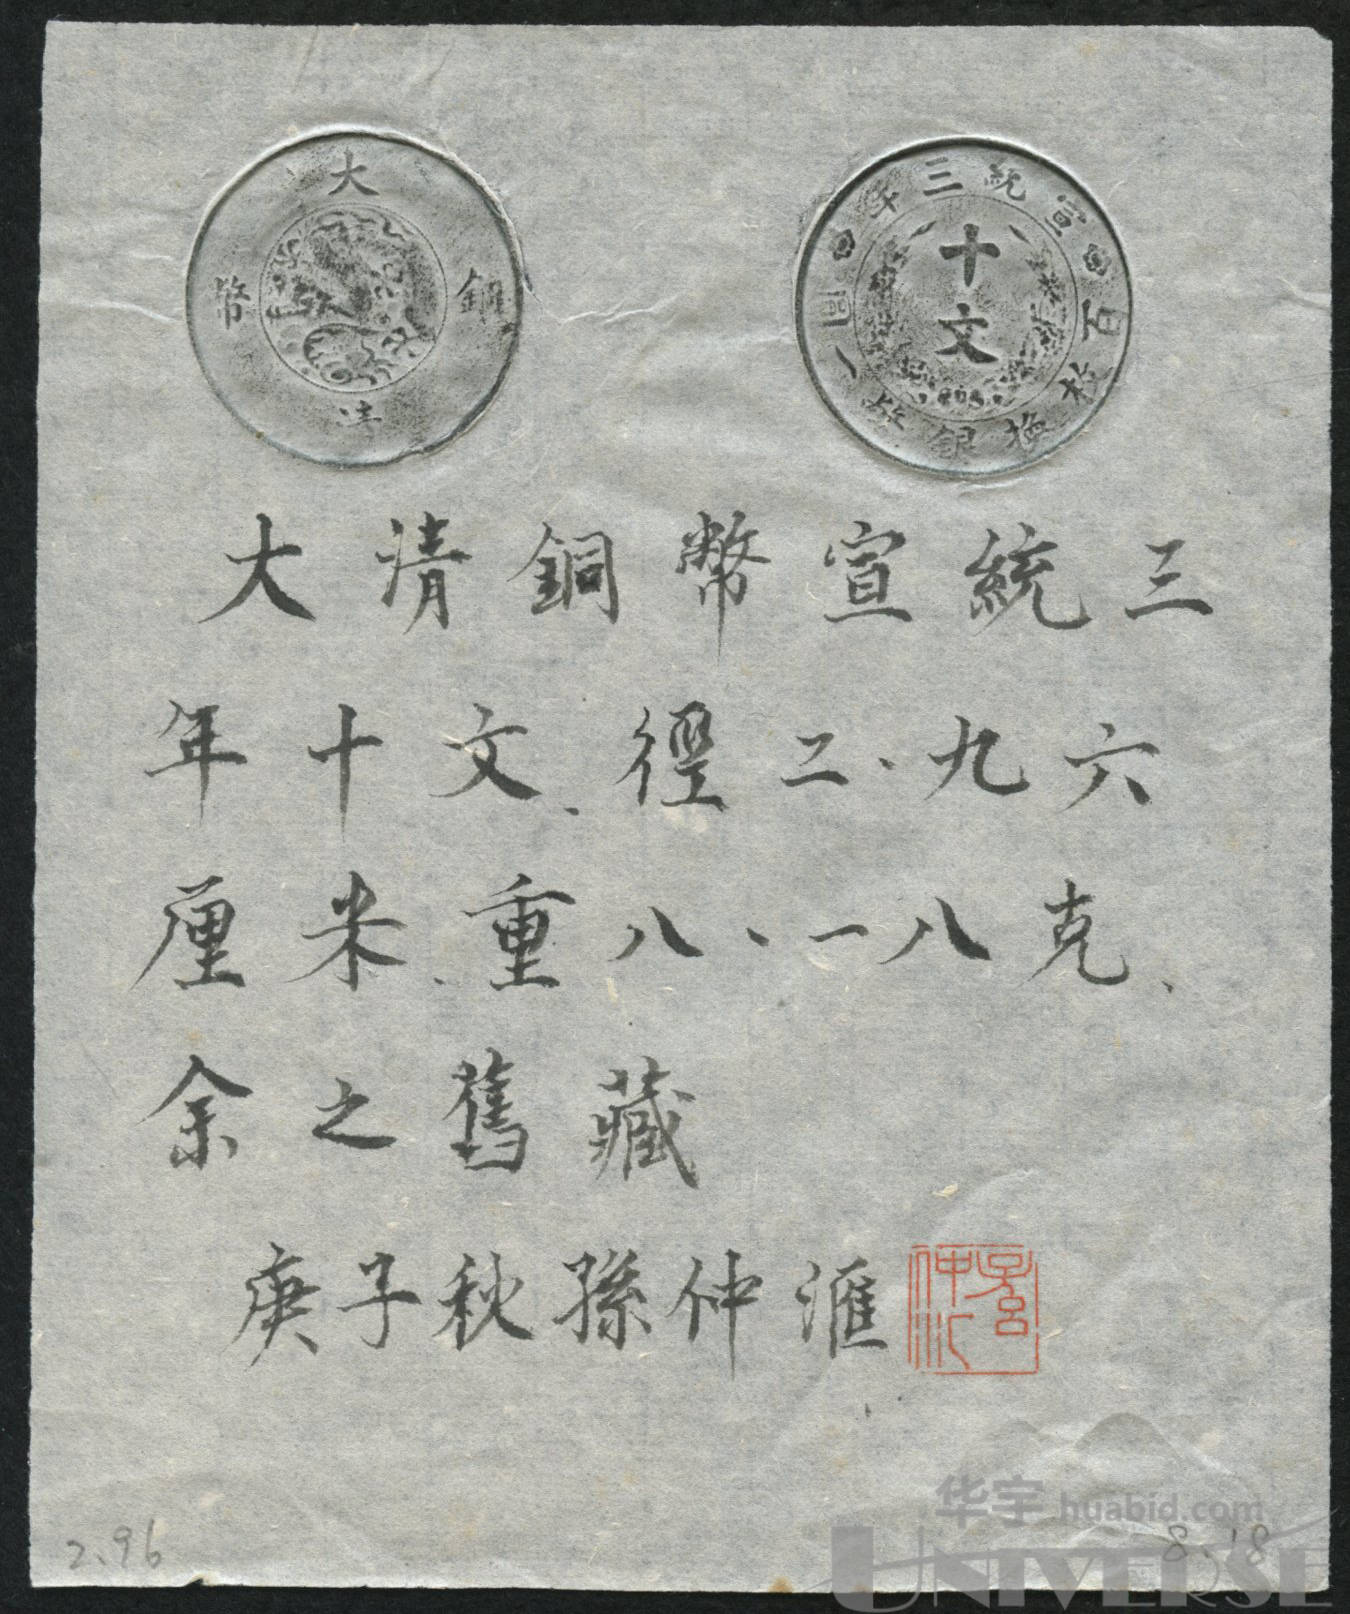 大
銅
幣
清
宣統三年
十文
百枚換銀幣一圓
大清銅幣宣統三
年十文、徑二、九六
厘米、重八、一八克、
余之舊藏
庚子秋孫仲滙
2.96
8.18
华宇 huabid.com
UNIVERSE